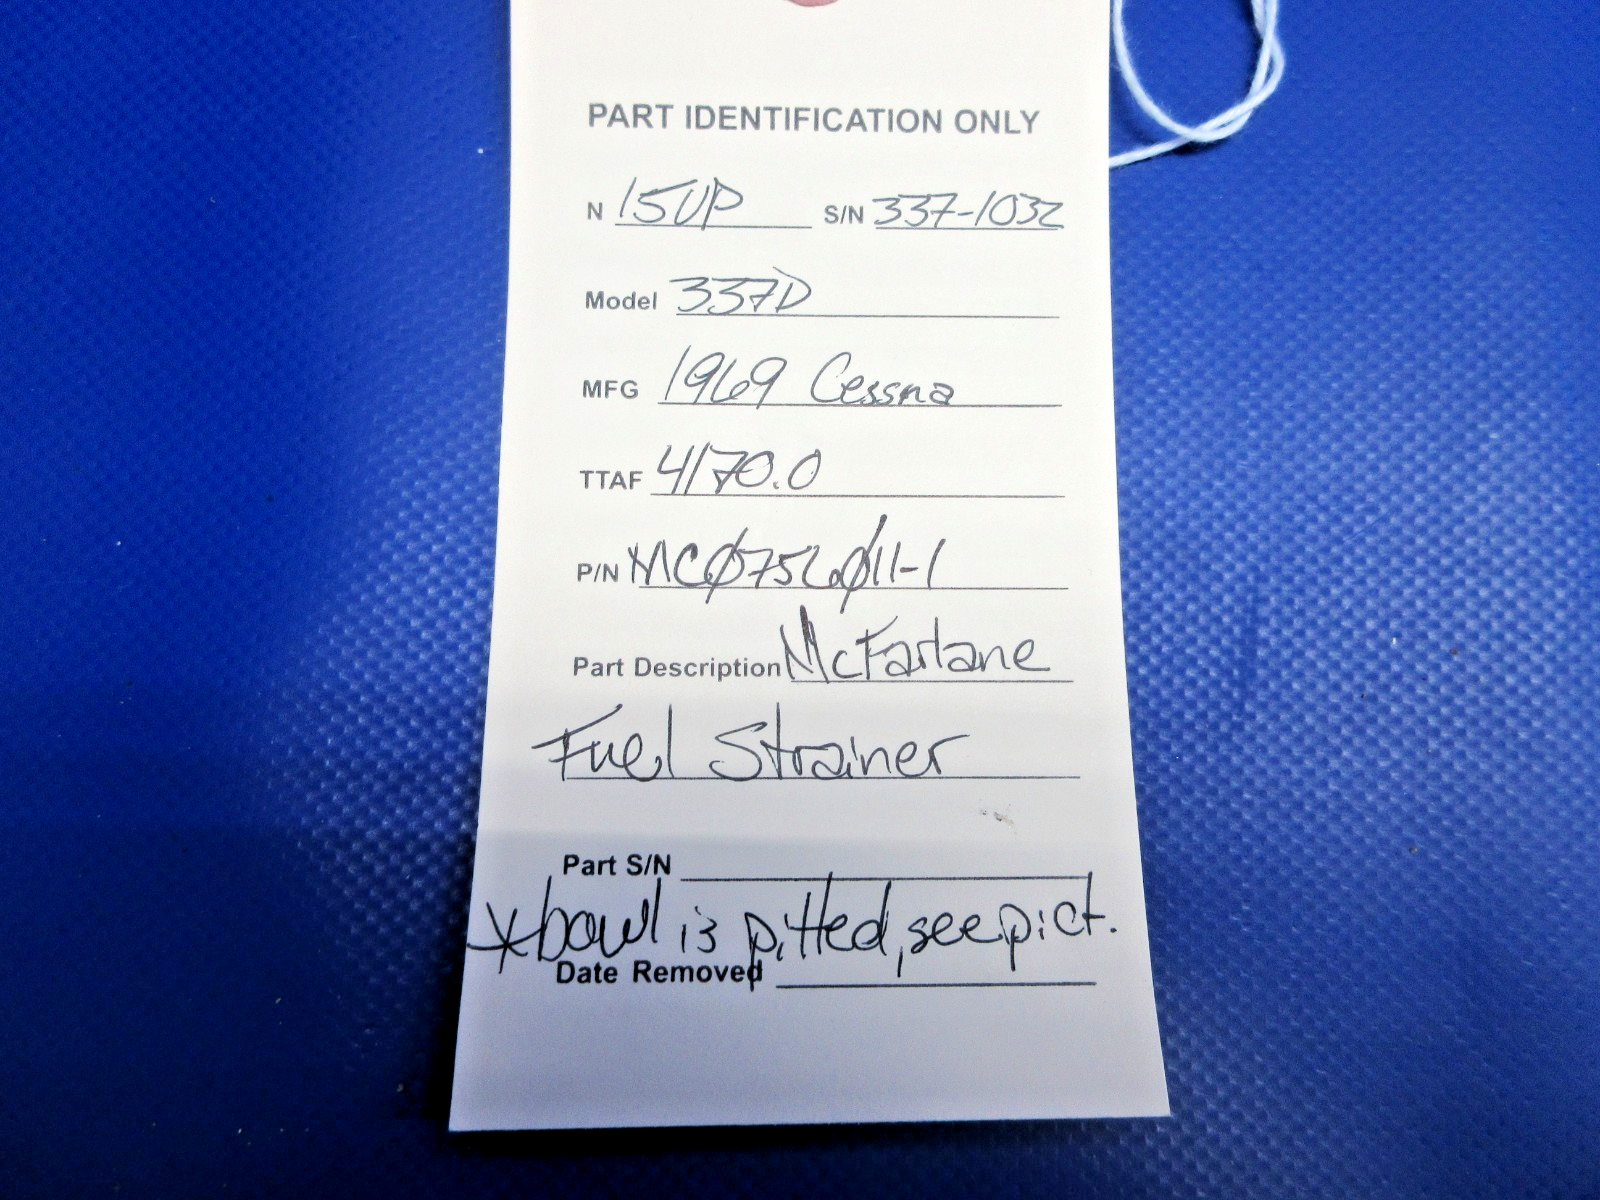 PART IDENTIFICATION ONLY
N 15UP S/N 337-1032
Model 337D
MFG 1969 Cessna
TTAF 4170.0
P/N MC0756011-1
Part Description McFarlane
Fuel Strainer
Part S/N
*bowl is pitted, see pict.
Date Removed